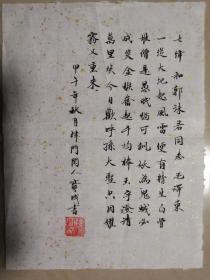 七律和郭沫若同志 毛澤東
一從大地起風雷便有精生白骨
堆僧是愚氓猶可訓妖為鬼蜮必
成災金猴奮起千鈞棒玉宇澄清
萬里埃今日歡呼孫大聖只緣妖
霧又重來
甲午年秋月津門閑人寶成書